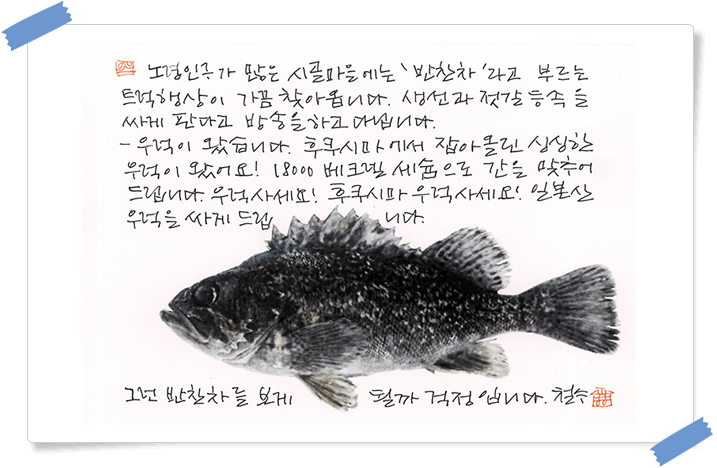 노령인구가 많은 시골마을에는 '반찬차'라고 부르는
트럭행상이 가끔 찾아옵니다. 생선과 젓갈 등속을
싸게 판다고 방송을하고 다닙니다.
- 우럭이 왔습니다. 후쿠시마에서 잡아올린 싱싱한
우럭이 왔어요! 18000 베크렐 세슘으로 간을 맞추어
드립니다. 우럭사세요! 후쿠시마 우럭사세요! 일본산
우럭을 싸게 드립 니다.
그런 반찬차를 보게 될까 걱정입니다. 철수